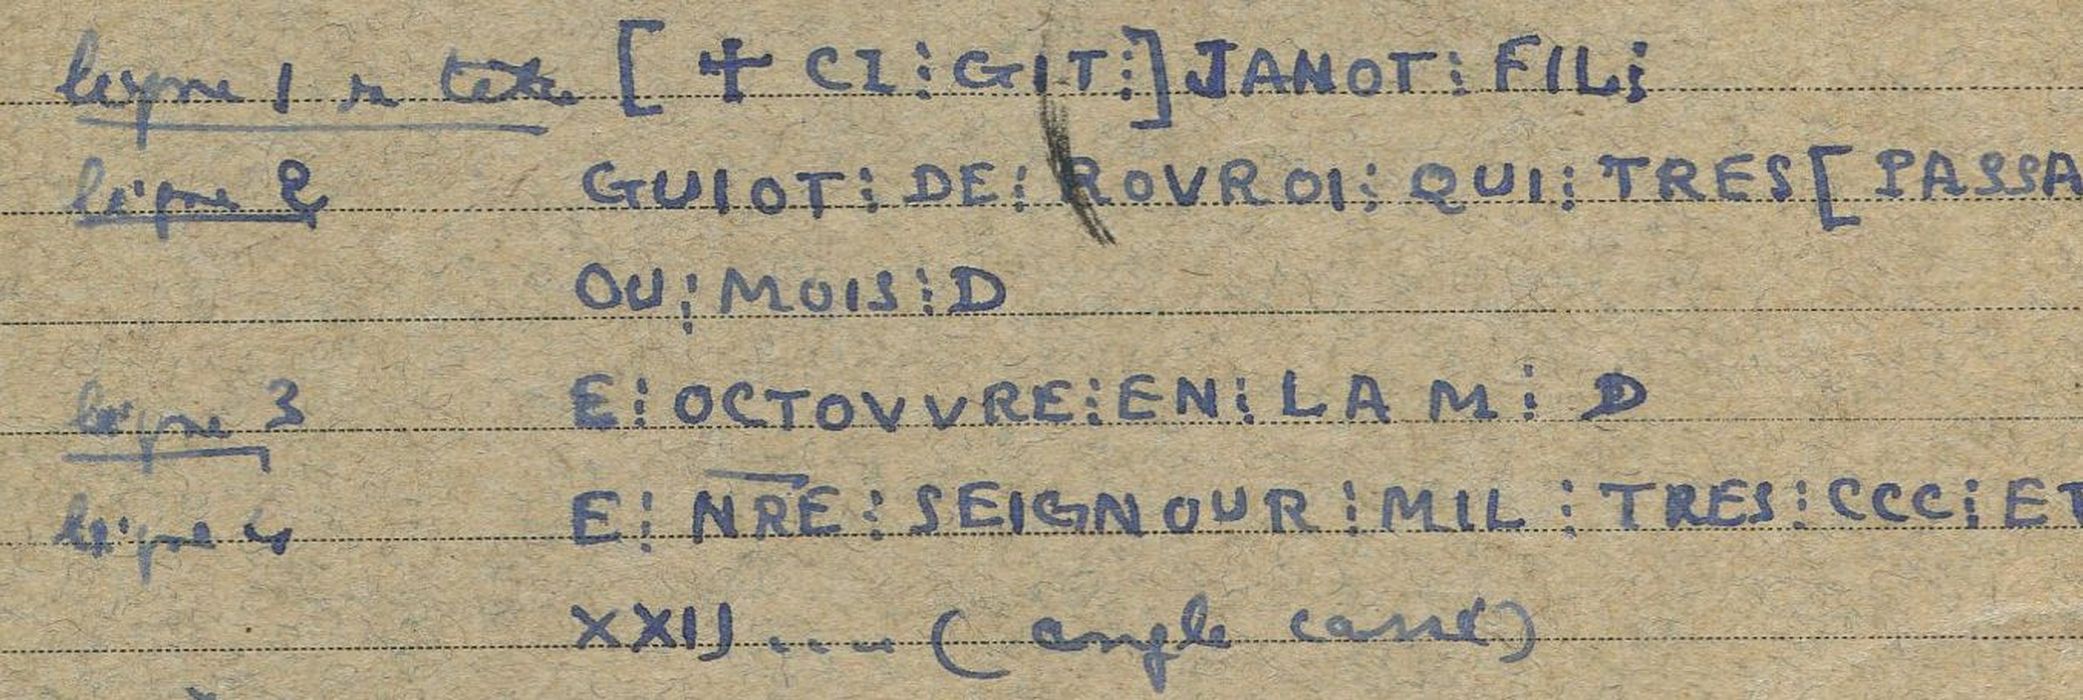 ligne 1 en tête [ + CI ⁝ GIT ⁝ ] JANOT ⁝ FIL ⁝
ligne 2 GUIOT ⁝ DE ⁝ ROVROI ⁝ QUI ⁝ TRES [ PASSA
OU ⁝ MOIS ⁝ D
ligne 3 E ⁝ OCTOVVRE ⁝ EN ⁝ LAM ⁝ D
ligne 4 E ⁝ N̅R̅E ⁝ SEIGNOUR ⁝ MIL ⁝ TRES ⁝ CCC ⁝ ET
XXIJ .... ( angle cassé )